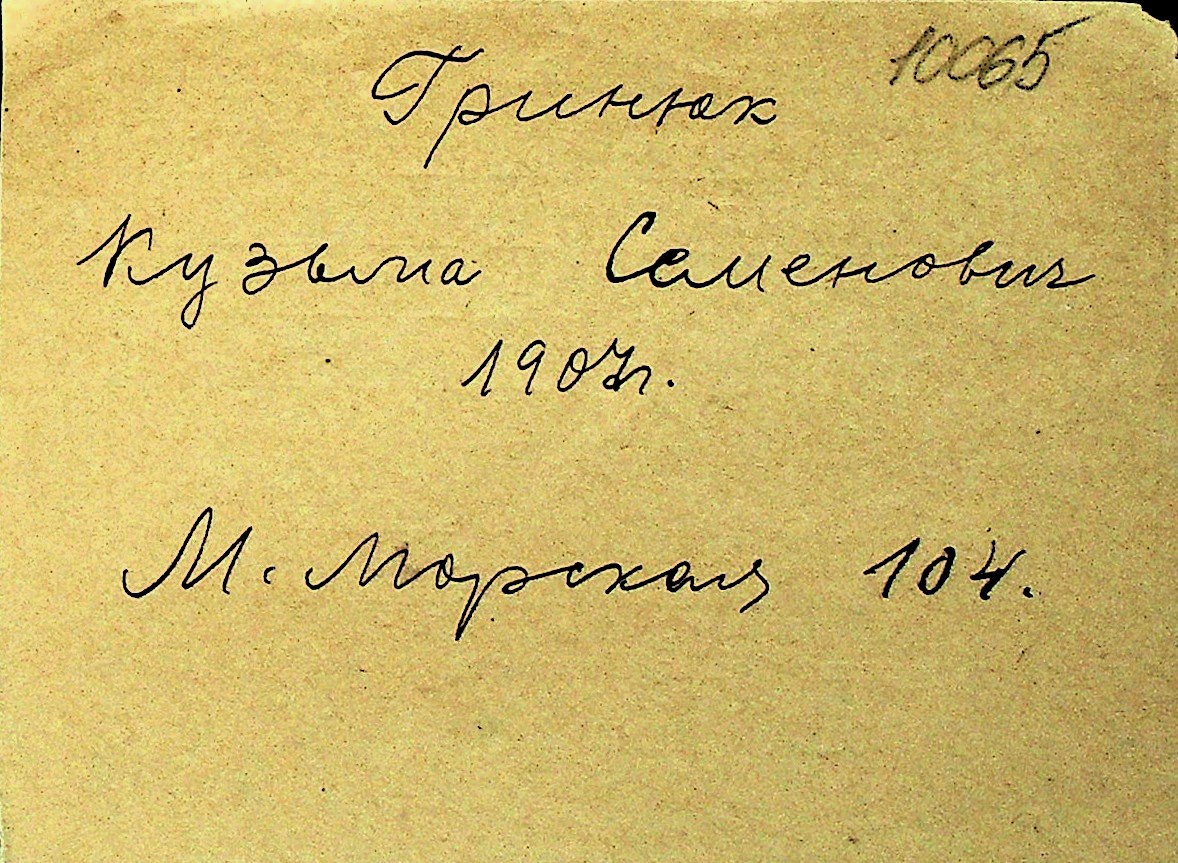 10065
Гринюк
Кузьма Семенович
1907г.
М. Морская 104.